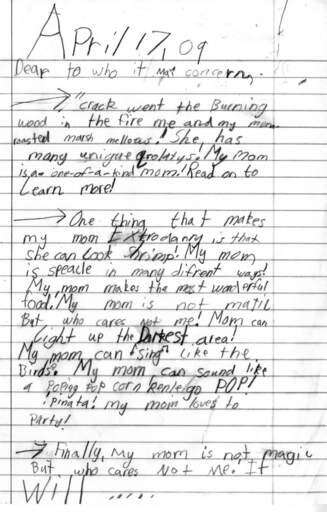 April 17, 09
Dear to who it mat concerny.
"crack went the Burning
wood in the fire me and my mom
roasted marsh mellows! She, has
many unique qolatys. My mom
is a one-of-a-kind mom! Read on to
Learn more!
One thing that makes
my mom Extrodanry is that
she can cook shrimp! My mom
is speacle in many difront ways!
My mom makes the most wonderful
food! My mom is not majic
But who cares not me! Mom can
Light up the Darkest area!
My mom can "sing" like the
Birds. My mom can sound like
a Poping pop corn go POP!
Pinata! my mom loves to
Party!
Finally, My mom is not magic
But who cares Not Me. It
Will .....